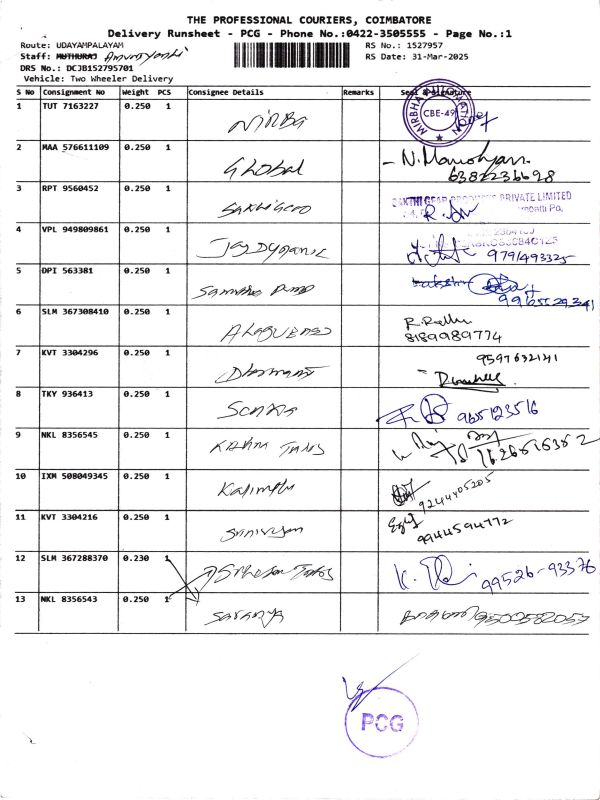 THE PROFESSIONAL COURIERS, COIMBATORE
Delivery Runsheet - PCG - Phone No.:0422-3505555 - Page No.:1
Route: UDAYAMPALAYAM RS No.: 1527957
Staff: MUTHURAJ RS Date: 31-Mar-2025
DRS No.: DCJB152795701
Vehicle: Two Wheeler Delivery
S No Consignment No Weight PCS Consignee Details Remarks Seal & Signature
1 TUT 7163227 0.250 1 NIRBA CBE-49
2 MAA 576611109 0.250 1 Global N. Manohyan 6382236698
3 RPT 9560452 0.250 1 Sakthi Gear SAKTHI GEAR PRODUCTS PRIVATE LIMITED
4 VPL 949809861 0.250 1 Jay Dynamic 9791493325
5 DPI 563381 0.250 1 9965529341
6 SLM 367308410 0.250 1 8189989774
7 KVT 3304296 0.250 1 9597632141
8 TKY 936413 0.250 1 965123516
9 NKL 8356545 0.250 1
10 IXM 508049345 0.250 1 9244405205
11 KVT 3304216 0.250 1 9944594772
12 SLM 367288370 0.230 1 99526-93376
13 NKL 8356543 0.250 1 Saranya 9500582057
PCG